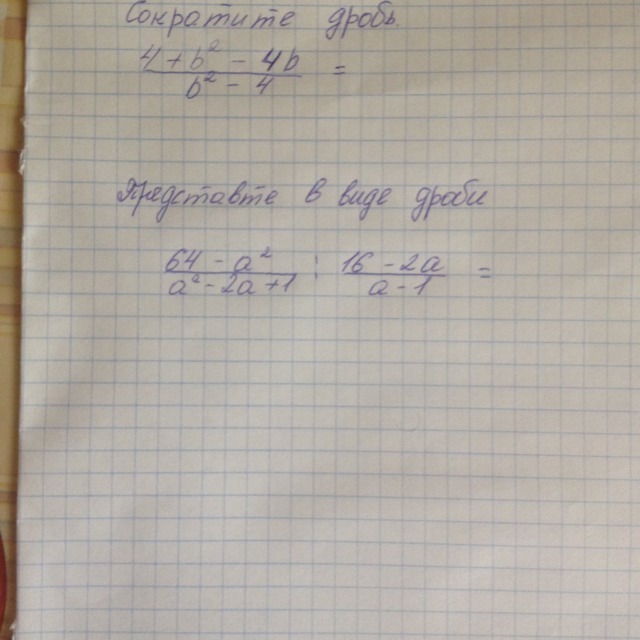 Сократите дробь
4 + b² - 4b
b² - 4 =
Представте в виде дроби
64 - a² : 16 - 2a =
a² - 2a + 1 a - 1